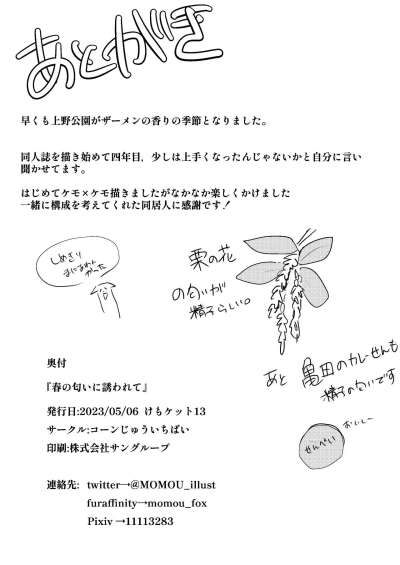 あとがき
早くも上野公園がザーメンの香りの季節となりました。
同人誌を描き始めて四年目，少しは上手くなったんじゃないかと自分に言い
聞かせてます。
はじめてケモ×ケモ描きましたがなかなか楽しくかけました
一緒に構成を考えてくれた同居人に感謝です！
しめきり
まにあわん
かった
栗の花
の匂いが
精子らしい。
あと 亀田のカレーせんも
精子の匂いです
おいし〜
せんべい
奥付
『春の匂いに誘われて』
発行日:2023/05/06 けもケット13
サークル:コーンじゅういちばい
印刷:株式会社サングループ
連絡先: twitter→@MOMOU_illust
furaffinity→momou_fox
Pixiv →11113283